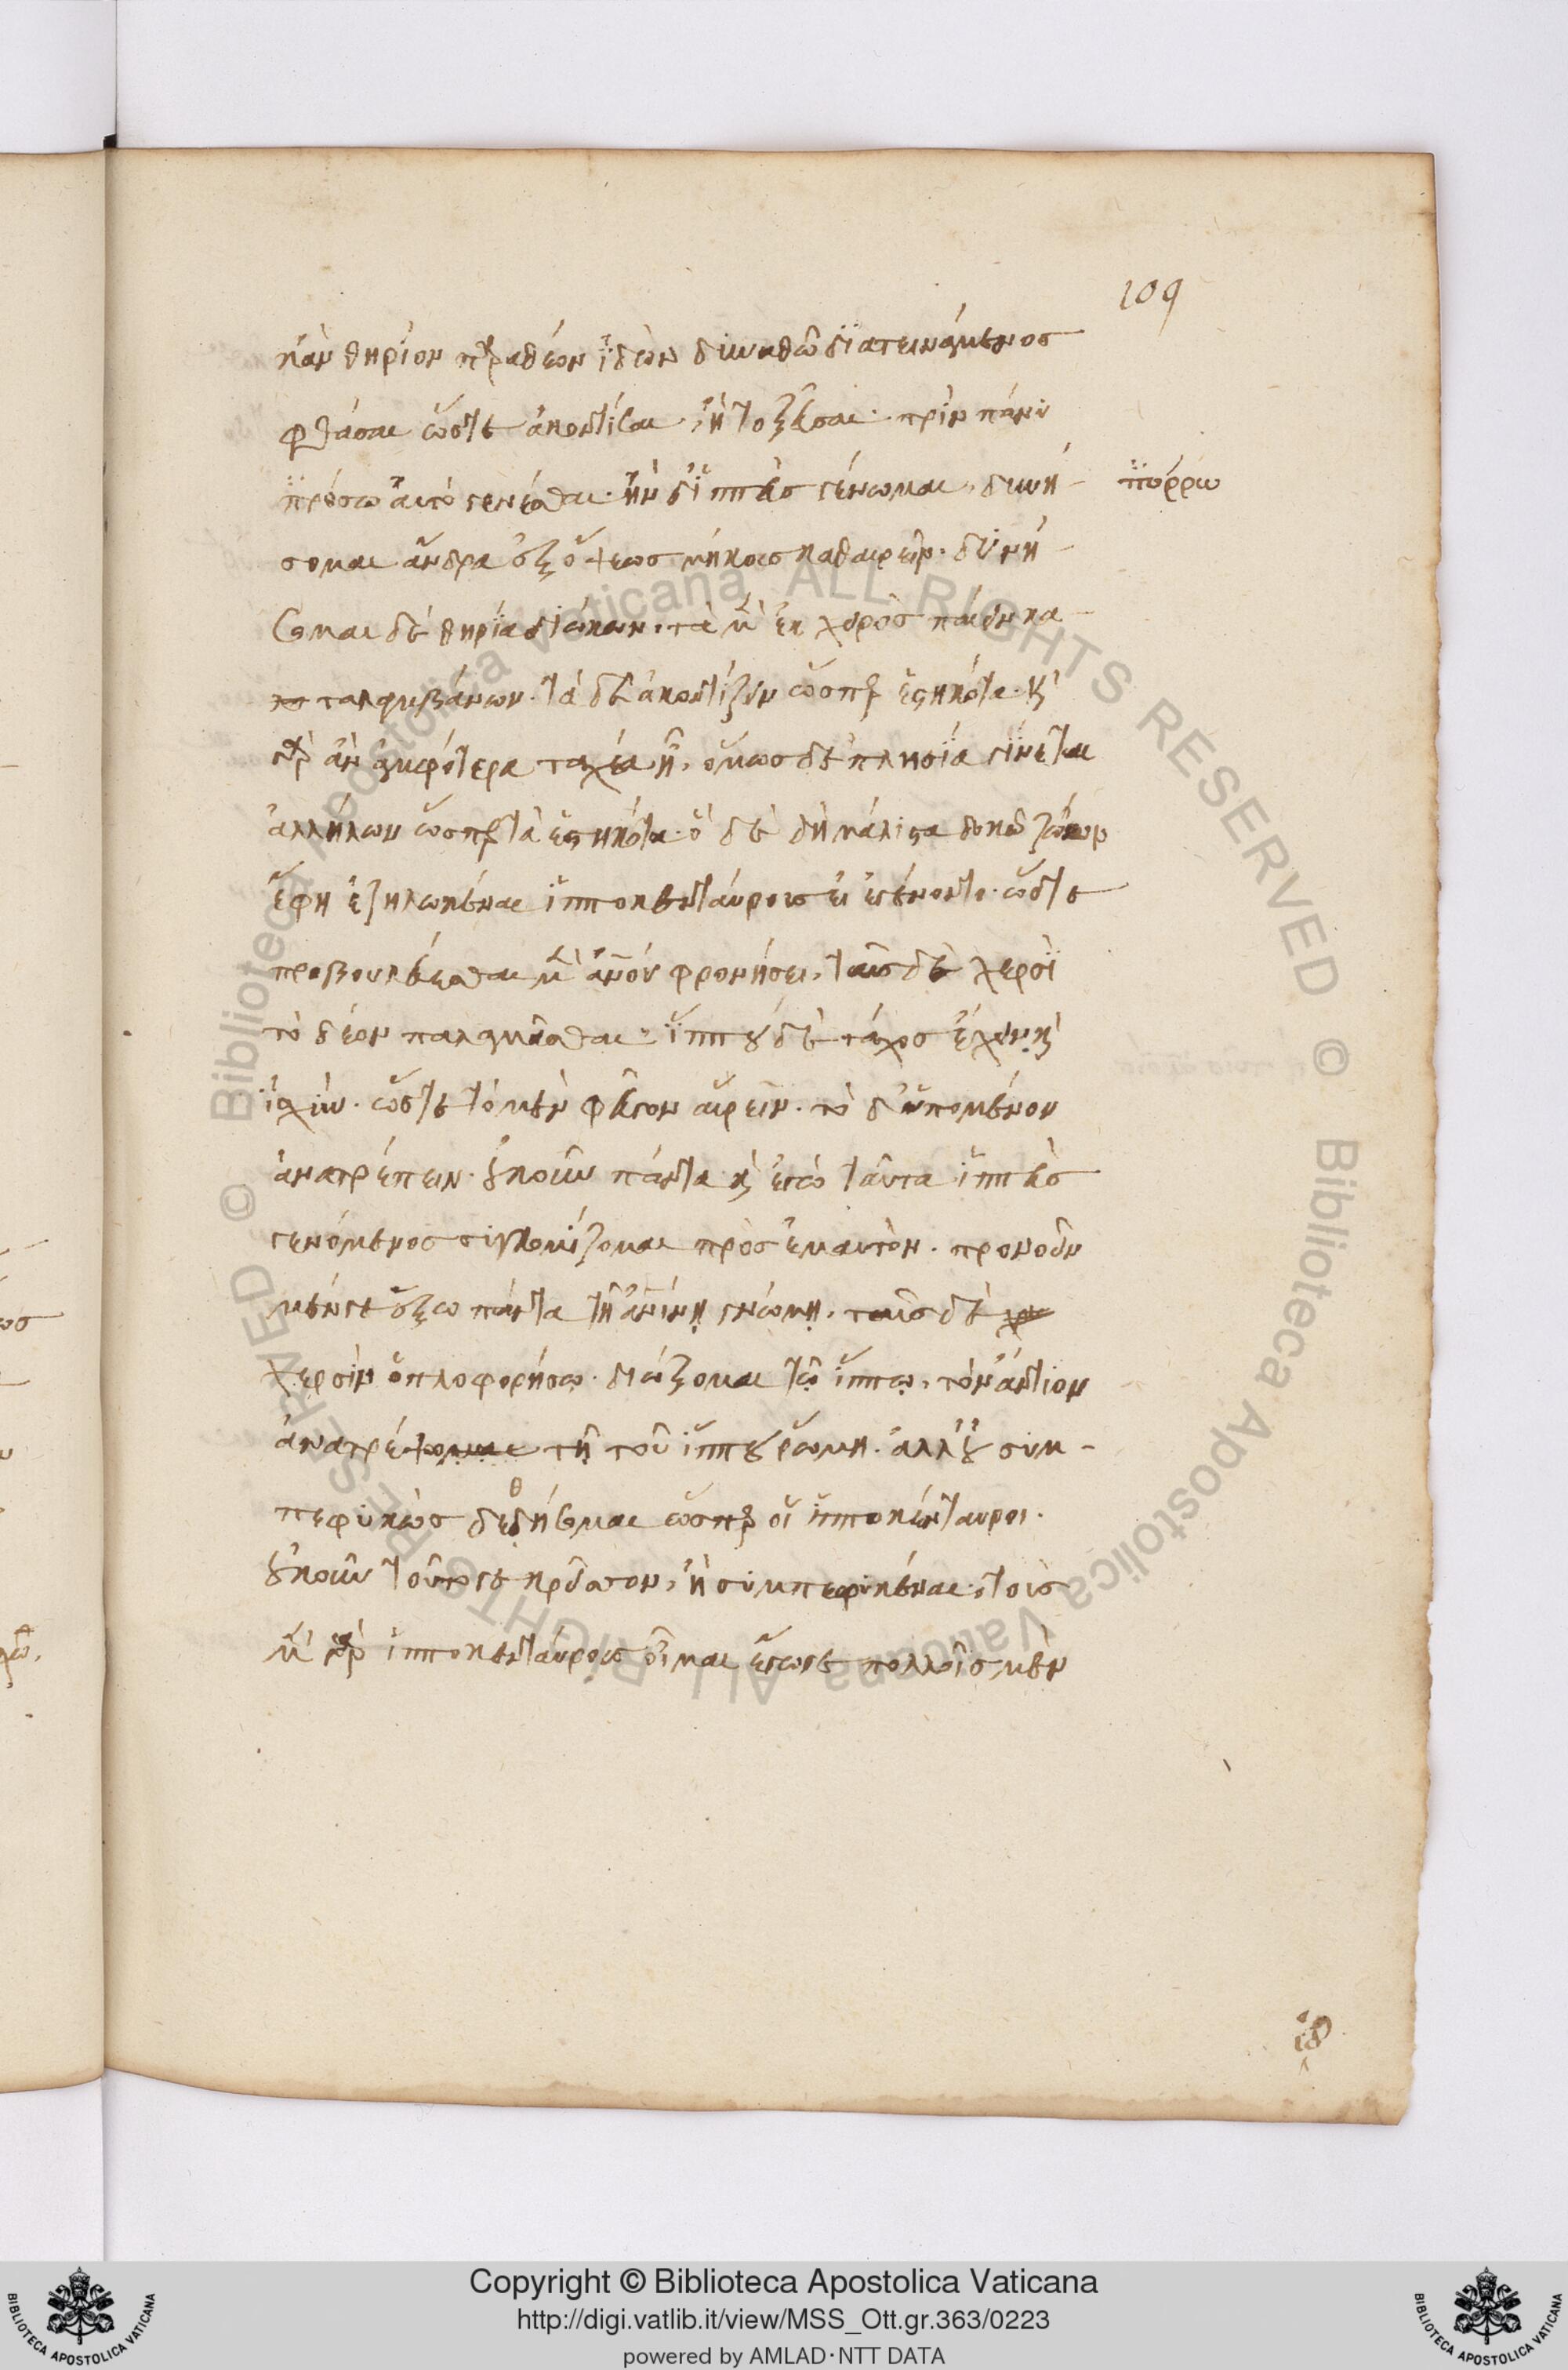 109
κἂν θηρίον παραθέον ἰδὼν δυνασθῶ διατεινάμενος
φθάσαι ὥστε ἀκοντίσαι ἢ τοξεῦσαι· πρὶν πάνυ
πρόσω αὐτὸ γενέσθαι· ἢν δ' ἱππεὺς γένωμαι, δυνή-
πόρρω
σομαι ἄνδρα ἐξ ὄψεως μήκους καθαιρεῖν· δυνή-
σομαι δὲ θηρία διώκων, τὰ μὲν ἐκ χειρὸς παίειν κα-
ταλαμβάνων· τὰ δὲ ἀκοντίζειν ὥσπερ ἑστηκότα· καὶ
γὰρ ἂν ἀμφότερα ταχέα ᾖ, ὅμως δὲ πλησία γίνεται
ἀλλήλων ὥσπερ τὰ ἑστηκότα· ὃ δὲ δὴ μάλιστα δοκῶ ζώων
ἔφη ἐζηλωκέναι ἱπποκενταύρους εἰ ἐγένοντο· ὥστε
προβουλεύεσθαι μὲν ἀνου φρονήσει, ταῖς δὲ χερσὶ
τὸ δέον παλαμᾶσθαι· ἵππου δὲ τάχος ἔχειν καὶ
ἰσχύν· ὥστε τὸ μὲν φεῦγον αἱρεῖν· τὸ δ' ὑπομένον
ἀνατρέπειν· οὐκοῦν πάντα καὶ ἐγὼ ταῦτα ἱππεὺς
γενόμενος συγκομίζομαι πρὸς ἐμαυτὸν· προνοεῖν
μέν γε ἕξω πάντα τῇ ἀνίνῃ γνώμῃ, ταῖς δὲ
χερσὶν ὁπλοφορήσω· διώξομαι τῷ ἵππῳ, τὸν ἀντίον
ἀνατρέψομαι τῇ τοῦ ἵππου ῥώμῃ· ἀλλ' οὐ συμ-
πεφυκὼς δεδήσομαι ὥσπερ οἱ ἱπποκένταυροι·
οὐκοῦν τοῦτο γε κρεῖσσον, ἢ συμπεφυκέναι· τοὺς
μὲν γὰρ ἱπποκενταύρους οἶμαι ἔγωγε πολλοῖς μὲν
Copyright © Biblioteca Apostolica Vaticana
http://digi.vatlib.it/view/MSS_Ott.gr.363/0223
powered by AMLAD·NTT DATA